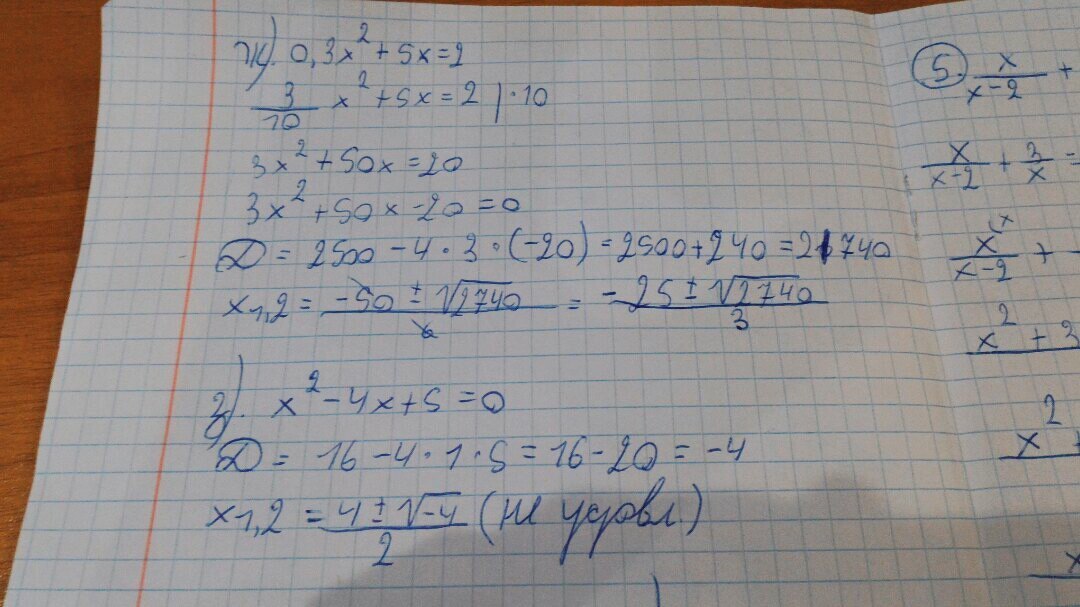 ж). 0,3x² + 5x = 2
3/10 x² + 5x = 2 | · 10
3x² + 50x = 20
3x² + 50x - 20 = 0
D = 2500 - 4 · 3 · (-20) = 2500 + 240 = 2740
x₁,₂ = (-50 ± √2740)/6 = (-25 ± √2740)/3
з). x² - 4x + 5 = 0
D = 16 - 4 · 1 · 5 = 16 - 20 = -4
x₁,₂ = (4 ± √-4)/2 (не удовл.)
5. x/(x-2) +
x/(x-2) + 3/x =
x^(x/(x-2) +
x² + 3
x² +
x